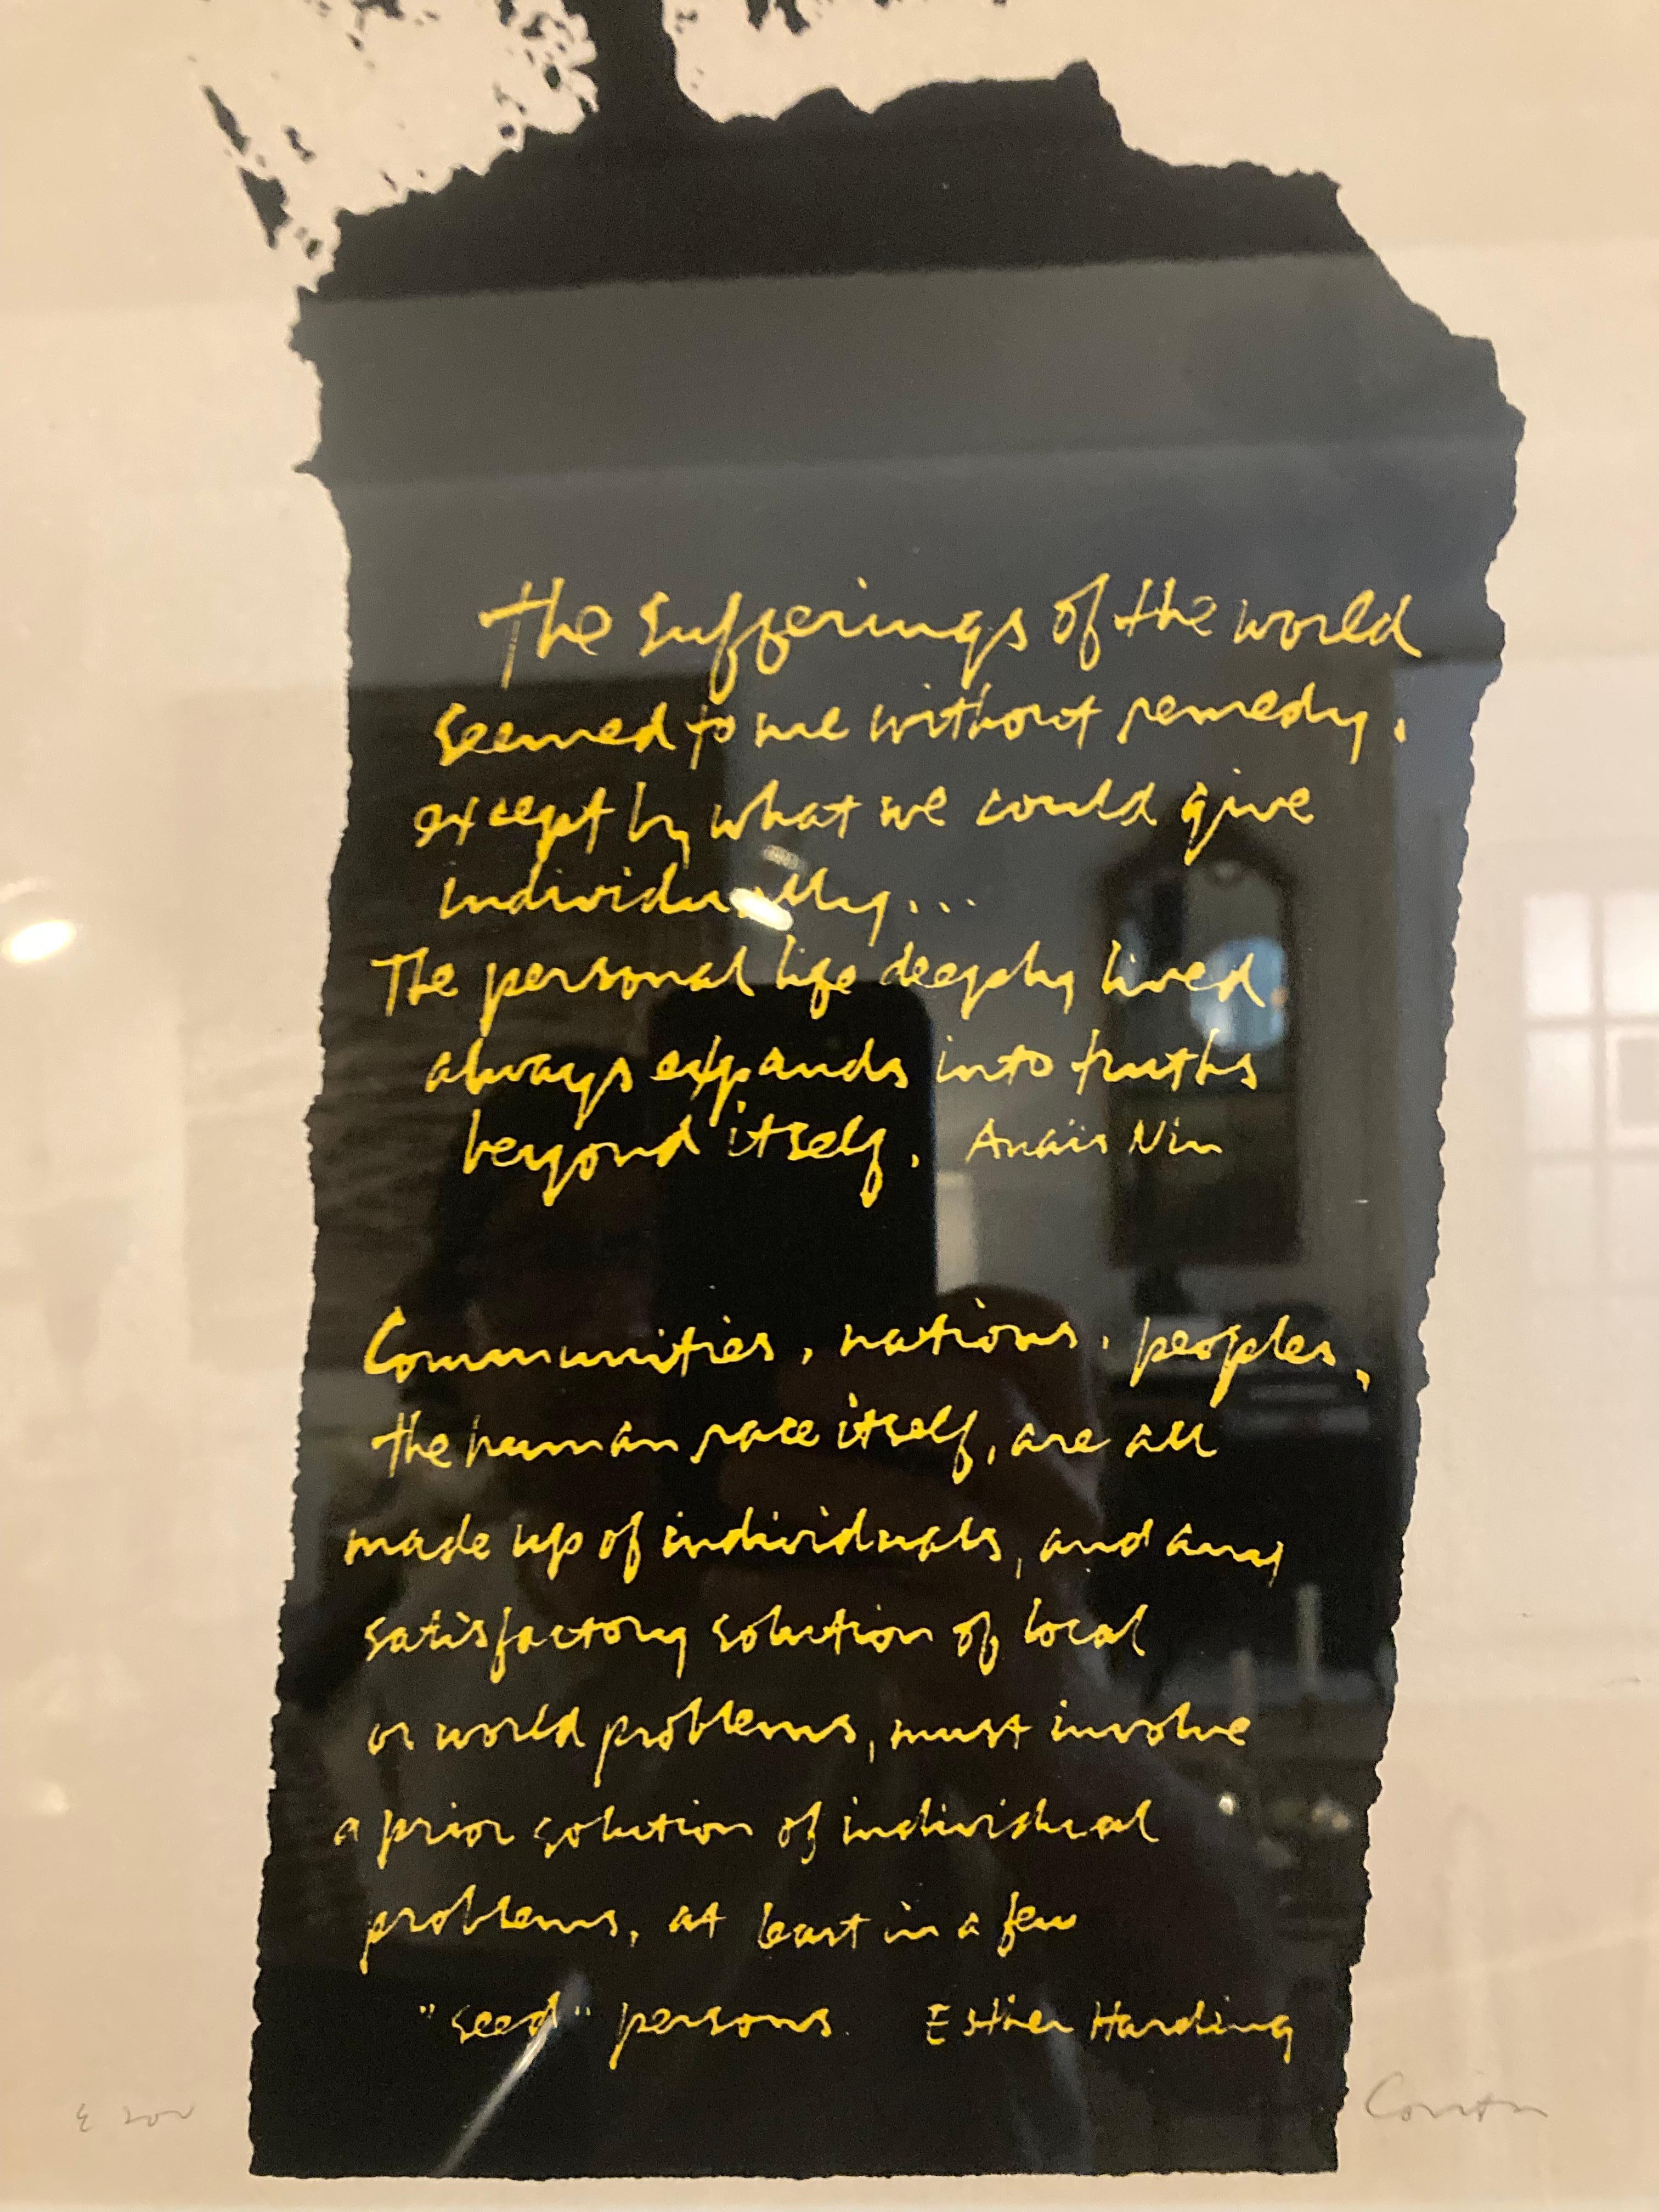 the sufferings of the world
seemed to me without remedy.
except by what we could give
individually...
The personal life deeply lived
always expands into truths
beyond itself. Anaïs Nin
Communities, nations, peoples,
the human race itself, are all
made up of individuals, and any
satisfactory solution of local
or world problems, must involve
a prior solution of individual
problems, at least in a few
"seed" persons. Esther Harding
E 200 Corita